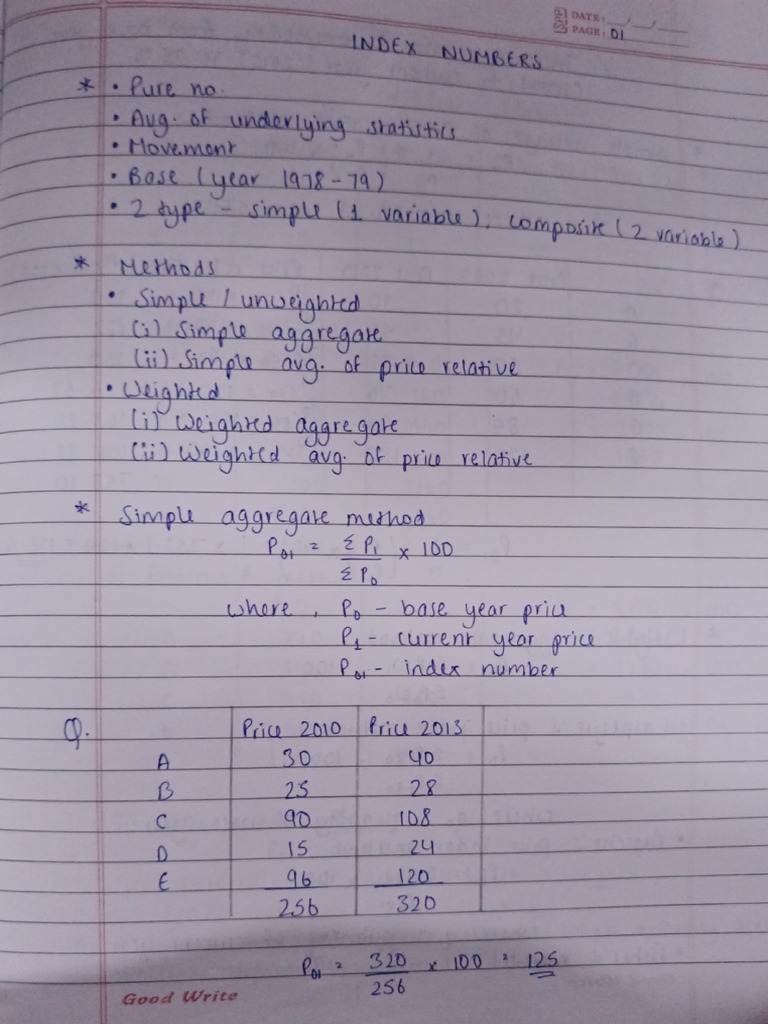 DATE: __/__/__
PAGE: 01
INDEX NUMBERS
* • Pure no.
• Avg. of underlying statistics
• Movement
• Base (year 1978-79)
• 2 type - simple (1 variable), composite (2 variable)
* Methods
• Simple / unweighted
(i) Simple aggregate
(ii) Simple avg. of price relative
• Weighted
(i) Weighted aggregate
(ii) Weighted avg. of price relative
* Simple aggregate method
P₀₁ = ΣP₁/ΣP₀ × 100
where, P₀ - base year price
P₁ - current year price
P₀₁ - index number
Q. Price 2010 Price 2013
A 30 40
B 25 28
C 90 108
D 15 24
E 96 120
256 320
P₀₁ = 320/256 × 100 = 125
Good Write